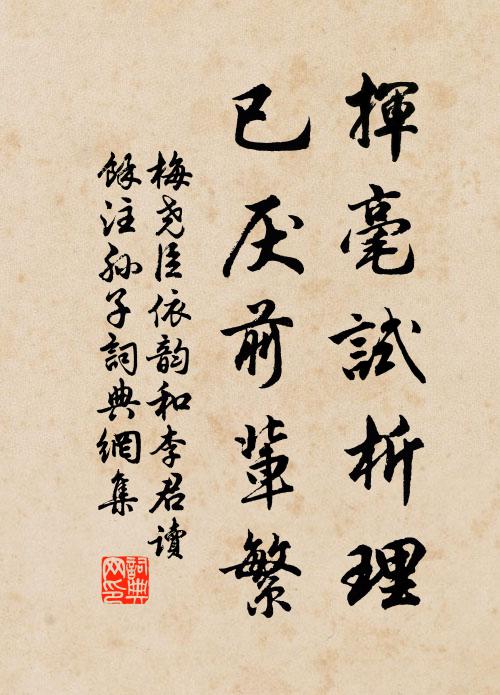 揮毫試析理
已厌前輩繁
梅尧臣依韵和李君讀
餘注孙子詞典網集
詞典网印